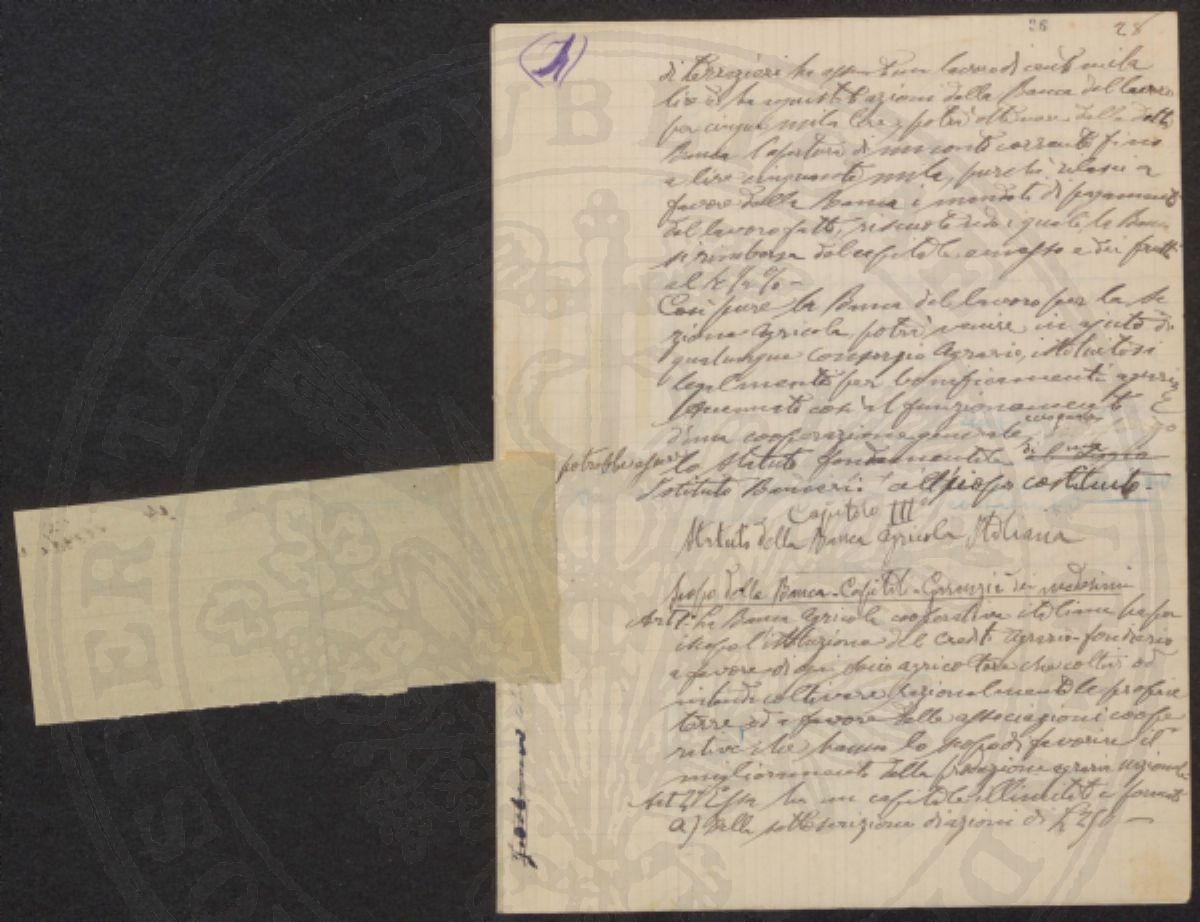 26 28
di terrazzieri ha assunto un lavoro di cento mila
lire e ha acquistato azioni della Banca del lavoro
per cinque mila lire, potrà ottenere dalla detta
Banca l'apertura di un conto corrente fino
a lire cinquanta mila, purché rilasci a
favore della Banca i mandati di pagamento
del lavoro fatto, riscuotendo i quali la Banca
si rimborsa del capitale emesso e dei frutti
al
Così pure la Banca del lavoro per la se
zione agricola potrà venire in aiuto di
qualunque Consorzio Agrario, istituitosi
legalmente per bonificamenti agrari
così il funzionamento
d'una cooperazione generale,
potrebbe essere
lo statuto fondamentale di
Istituto Bancario all'uopo costituito.
Capitolo III°
Statuto della Banca Agricola Italiana
Scopo della Banca - Capitale - Garanzie dei medesimi
Art 1° La Banca Agricola cooperativa italiana ha per
iscopo l'istituzione del credito agrario-fondiario
a favore di ogni socio agricoltore che coltivi od
intenda coltivare razionalmente le proprie
terre ed a favore delle associazioni coope
rative che hanno lo scopo di favorire il
miglioramento della produzione agraria nazionale
Art 2° Essa ha un capitale illimitato e formato
a) Dalla sottoscrizione di azioni di L 250 —